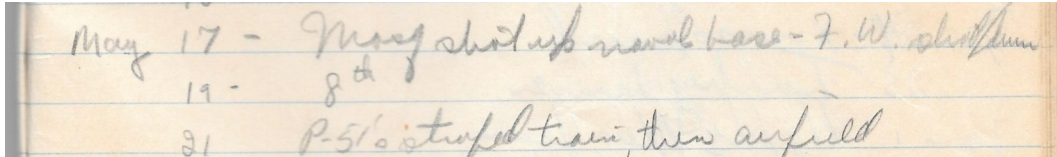 May 17 - Mosq shot up naval base - F.W. shot down
19 - 8th
21 P-51's strafed train, then airfield